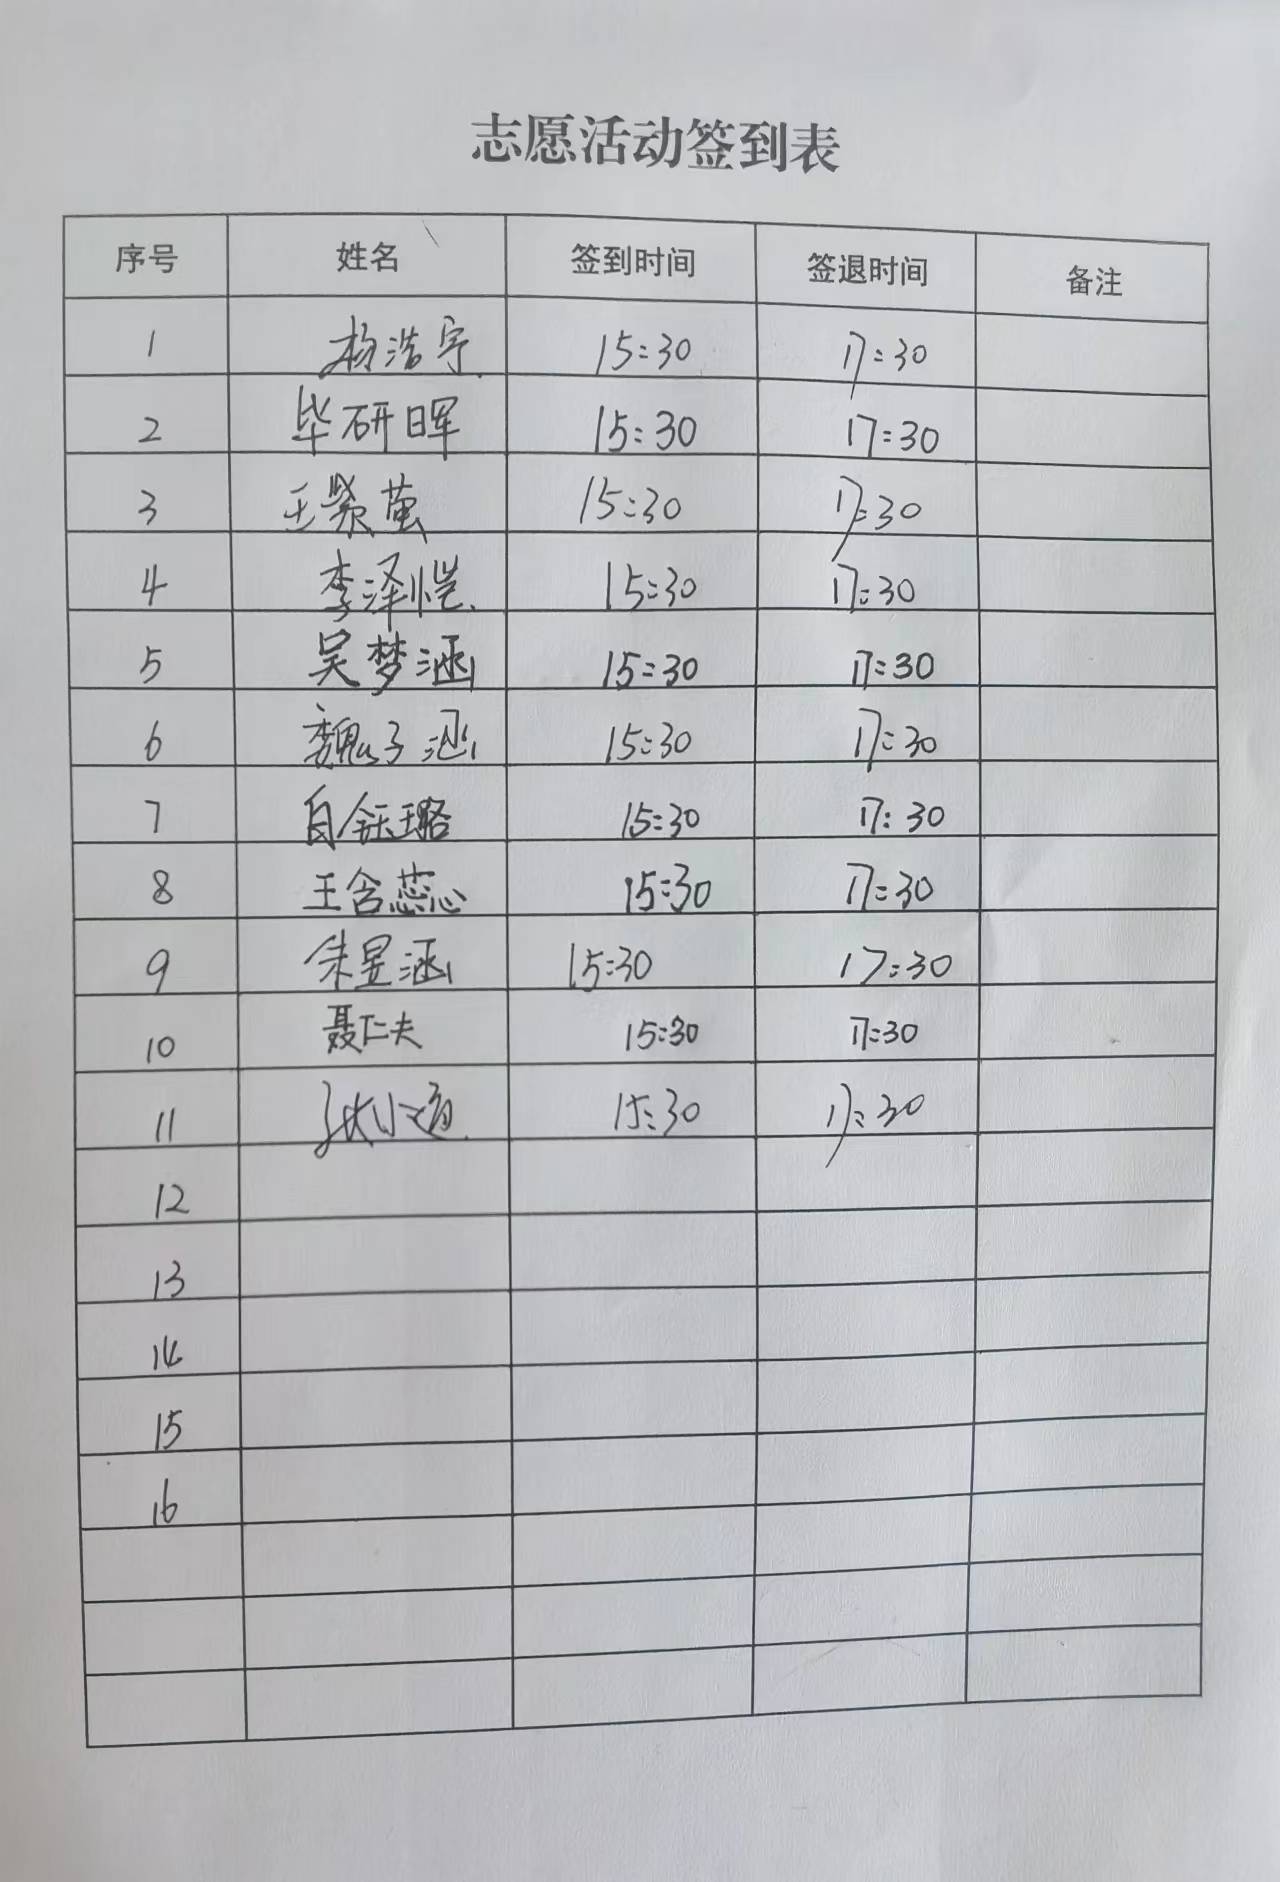 志愿活动签到表
序号 姓名 签到时间 签退时间 备注
1 杨浩宇 15:30 17:30
2 毕研晖 15:30 17:30
3 王紫萤 15:30 17:30
4 李泽恺 15:30 17:30
5 吴梦涵 15:30 17:30
6 魏子涵 15:30 17:30
7 白钰璐 15:30 17:30
8 王含蕊 15:30 17:30
9 朱昱涵 15:30 17:30
10 聂仁夫 15:30 17:30
11 15:30 17:30
12
13
14
15
16